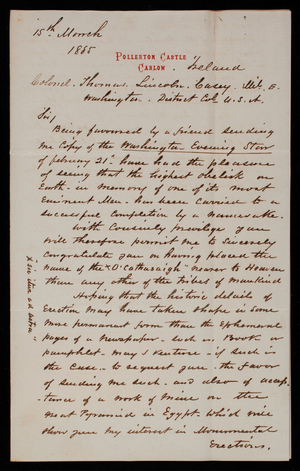 15th March
1885
POLLERTON CASTLE
CARLOW.
Ireland
Colonel Thomas Lincoln Casey. U.S. E.
Washington. District Col. U.S.A.
Sir,
Being favoured by a friend sending
me Copy of the Washington Evening Star
of february 21st have had the pleasure
of seeing that the highest obelisk on
Earth - in memory of one of its most
Eminent Men - has been carried to a
successful Completion by a namesake.
With Cousinly privilege you
will therefore permit me to Sincerely
Congratulate you on having placed the
name of the "O'Cathasaigh" nearer to Heaven
than any other of the tribes of Mankind
Hoping that the historic details of
Erection may have taken shape in some
more permanent form than the Ephemeral
pages of a Newspaper - such as Book or
pamphlet - may I venture - if such is
the Case - to request you the favor
of sending me such - and also of accep
-tance of a work of mine on the
great Pyramid in Egypt - which will
show you my interest in Monumental
Erections.
"Sic itur ad astra"